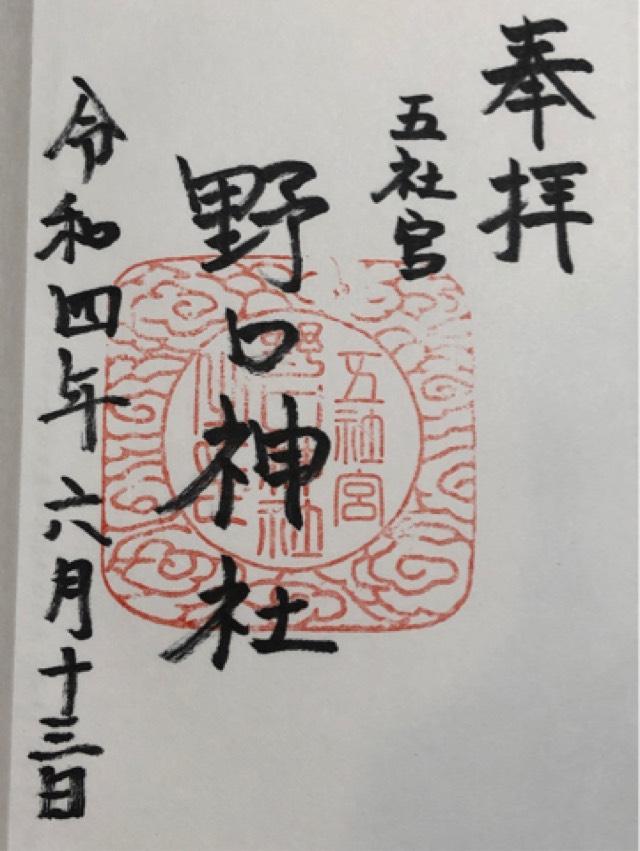 奉拝
五社宮
野口神社
令和四年六月十三日
五社宮
野口神社